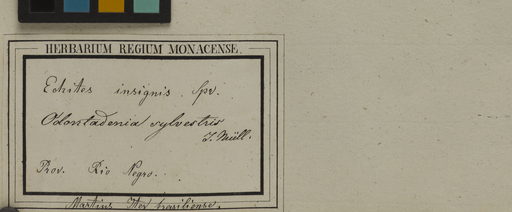 HERBARIUM REGIUM MONACENSE.
Echites insignis. Spr.
Odontadenia sylvestris
J. Müll.
Prov. Rio Negro.
Martius Iter brasiliense.